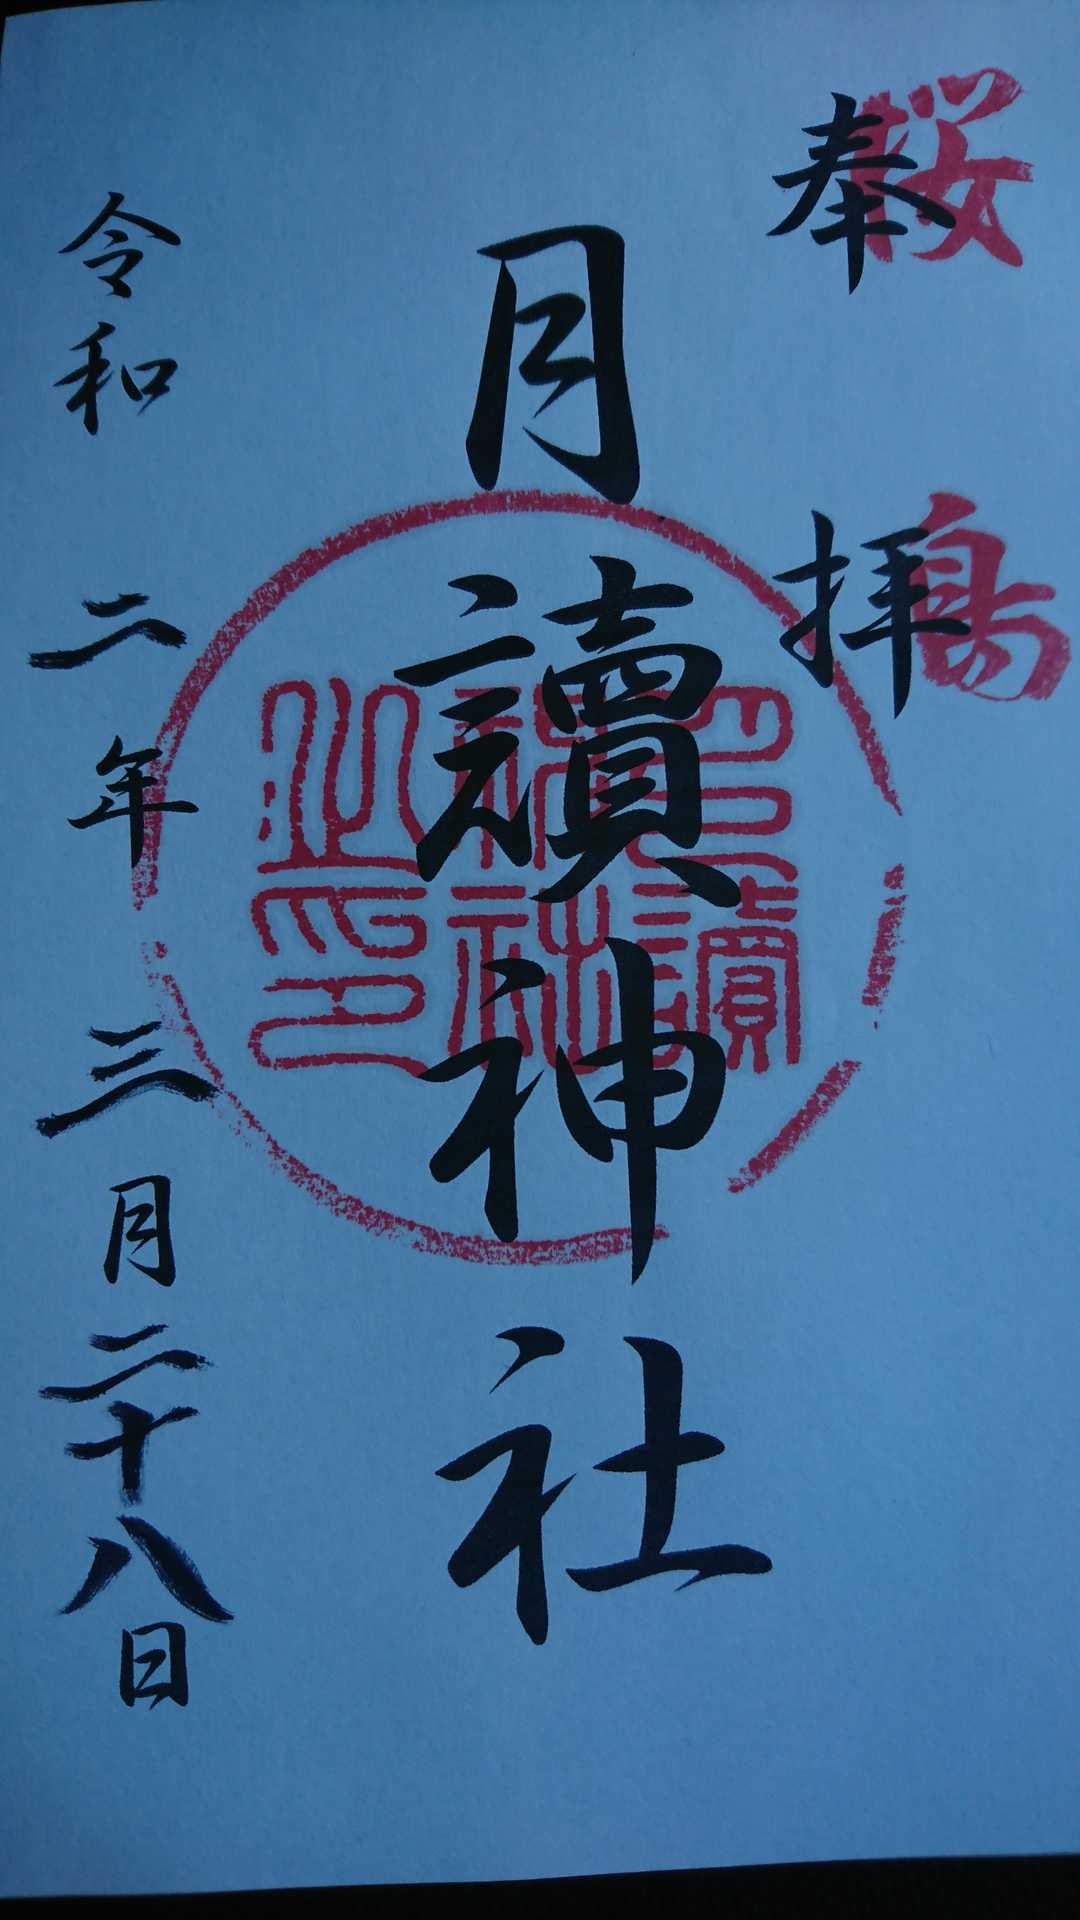 奉拝
桜島
月讀神社
月讀神社之印
令和二年三月二十八日